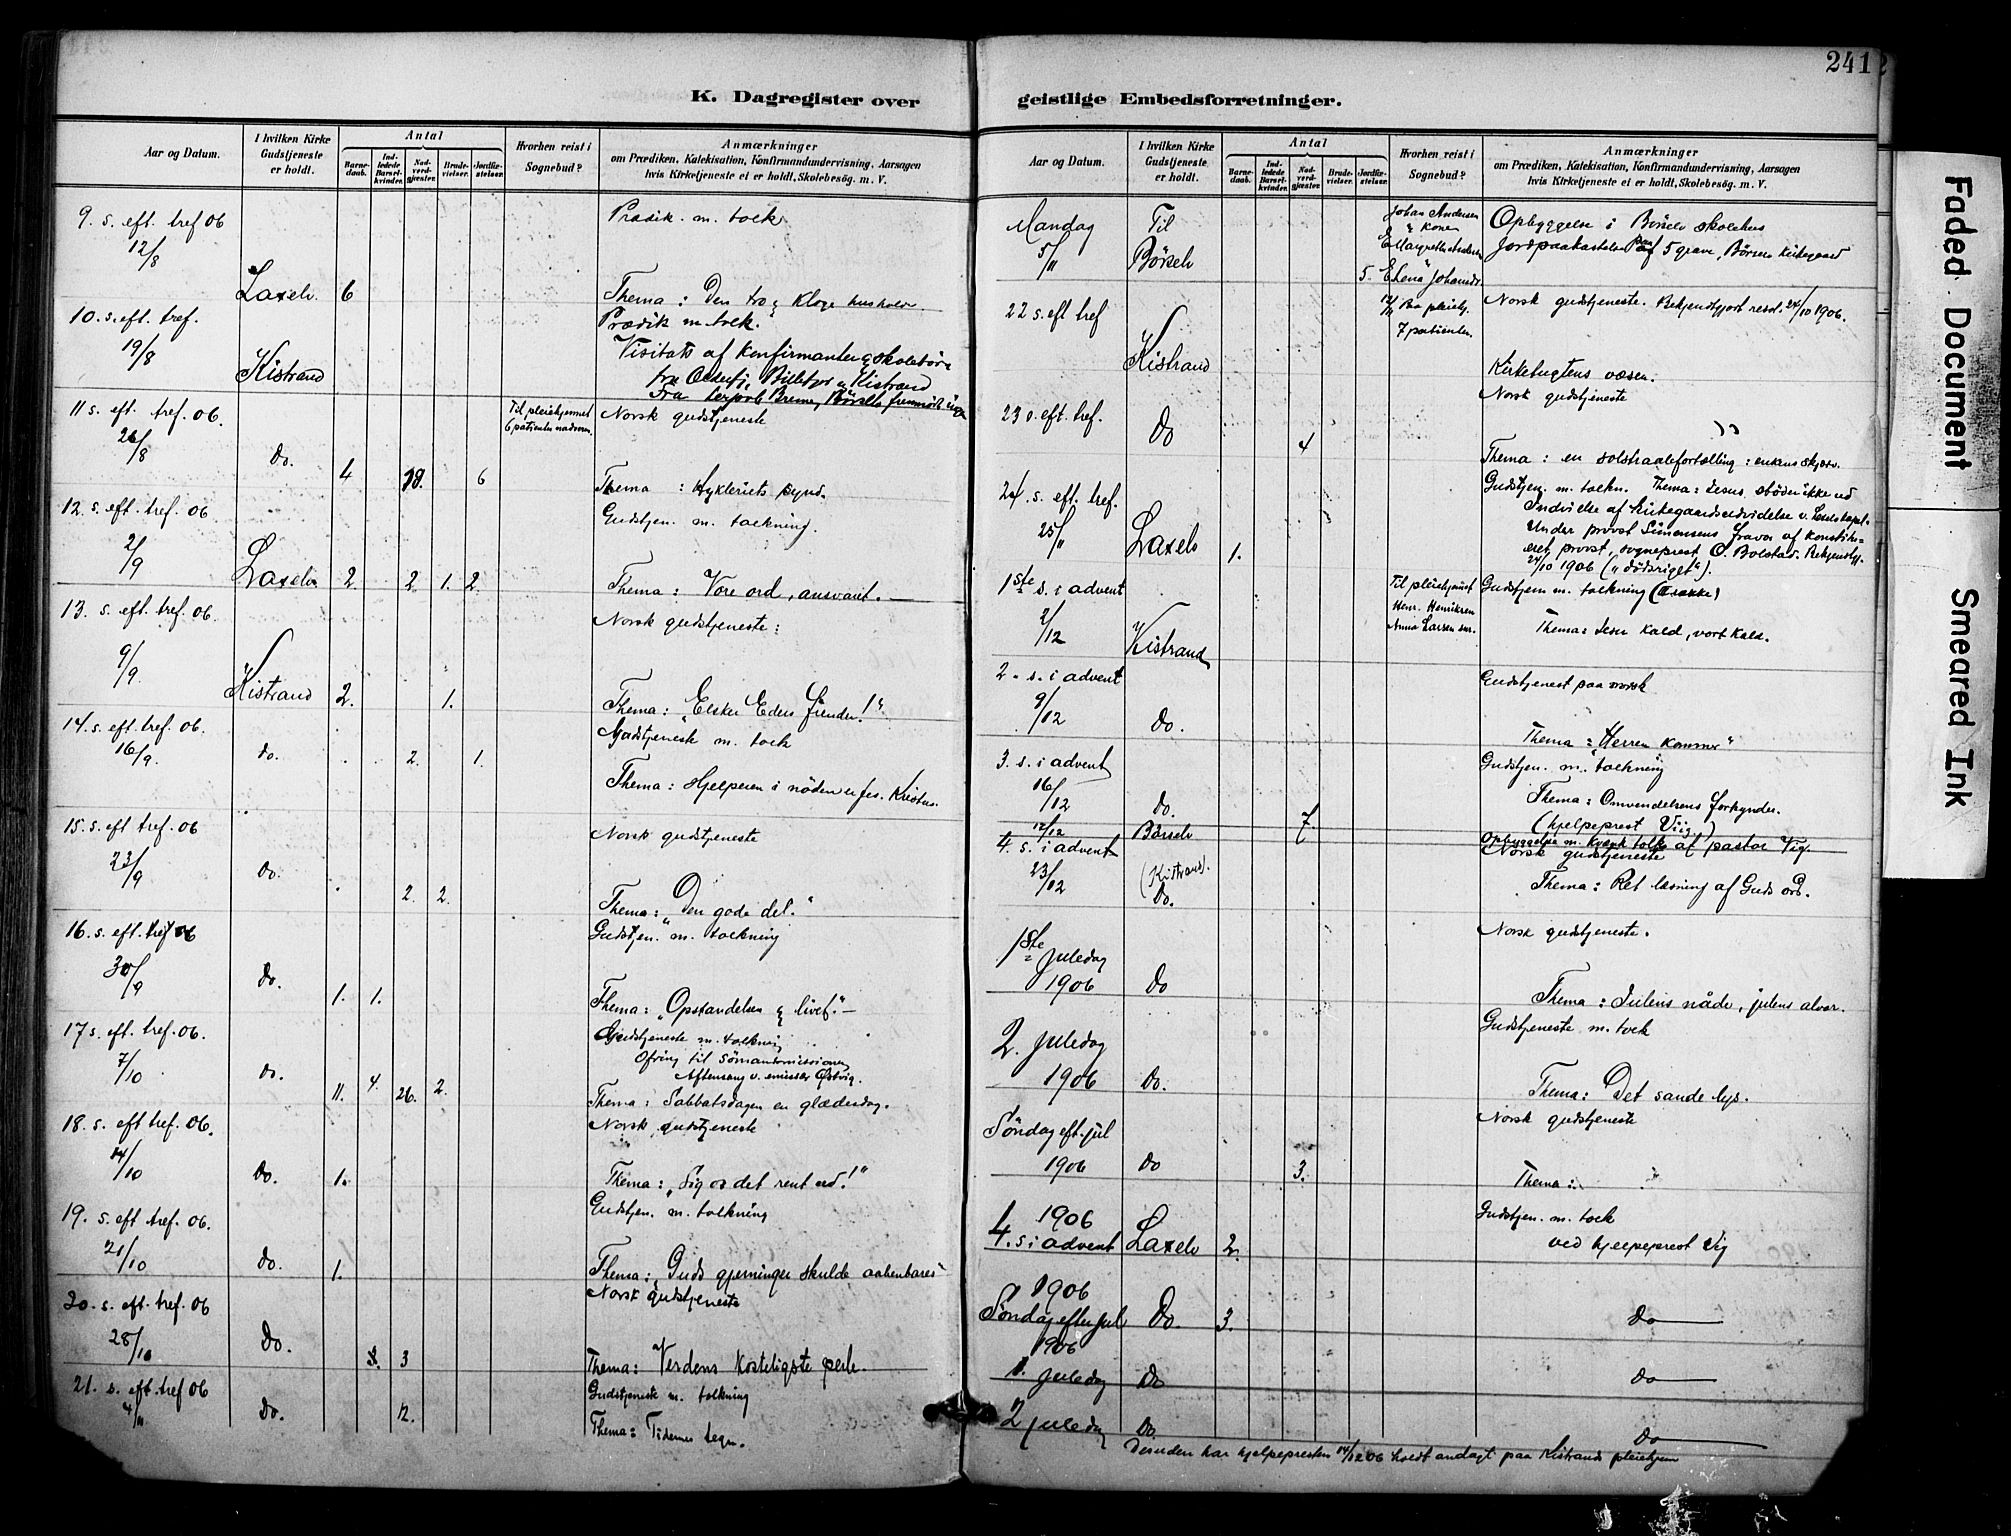 241
K. Dagregister over geistlige Embedsforretninger.
Aar og Datum.
I hvilken Kirke Gudstjeneste er holdt.
Antal
Barne-daab.
Ind-ledede Barsel-kvinder.
Nad-verd-gjæster.
Brude-vielser.
Jordfæ-stelser.
Hvorhen reist i Sognebud?
Anmærkninger
om Prædiken, Katekisation, Konfirmandundervisning, Aarsagen
hvis Kirketjeneste ei er holdt, Skolebesøg. m. V.
9. s. eft. tref 06
12/8
Laxelv. 6
Prædik. m. tolk
Thema: Den tro og kloge husholder
10. s. eft. tref.
19/8
Kistrand
Prædik m. tolk.
Visitats af konfirmanter og skolebörn
fra Billefjor og Kistrand
11 s. eft. tref. 06.
26/8
Do. 4 18. 6
Til pleiehjemmet
6 patienter nadveren.
Norsk gudstjeneste
Thema: Hykleriets synd.
12. s. eft. tref. 06
2/9
Laxelv 2. 2. 1. 2.
Gudstjen. m. tolkning.
Thema: Vore ord, ansvaret. —
13. s. eft. tref. 06.
9/9
Kistrand 2. 1.
Norsk gudstjeneste:
Thema: „Elsker Eders fiender!"
14. s. eft. tref. 06.
16/9
do. 2. 1.
Gudstjeneste m. tolk
Thema: Hjelperen i nöden er Jes. Kristus.
15. s. eft tref. 06
23/9
do. 2. 2.
Norsk gudstjeneste
Thema: „Den gode del."
16. s. eft. tref 06
30/9
Do. 1. 1.
Gudstjen. m. tolkning
Thema: „Opstandelsen og livet". —
17 s. eft. tref. 06.
7/10
Do. 11. 4. 26. 2.
Gudstjeneste m. tolkning
Ofring til Sömandsmissionen
Aftensang v. emissær Østvig.
Thema: Sabbatsdagen en glædesdag.
18. s. eft tref. 06.
14/10
Do. 1.
Norsk gudstjeneste
Thema: „Sig os det rent ud!"
19. s. eft tref. 06.
21/10
Do. 1.
Gudstjen. m. tolkning
Thema: „Guds gjerninger skulde aabenbares"
20. s. eft. tref. 06
28/10
Do. 3
Norsk gudstjeneste
Thema: Verdens kosteligste perle.
21. s. eft. tref 06
4/11
Do. 12.
Gudstjeneste m. tolkning
Thema: Tidernes tegn.
Aar og Datum.
I hvilken Kirke Gudstjeneste er holdt.
Antal
Barne-daab.
Ind-ledede Barsel-kvinder.
Nad-verd-gjæster.
Brude-vielser.
Jordfæ-stelser.
Hvorhen reist i Sognebud?
Anmærkninger
om Prædiken, Katekisation, Konfirmandundervisning, Aarsagen
hvis Kirketjeneste ei er holdt, Skolebesøg. m. V.
Mandag
5/11
Til
Börselv
5.
Johan Andersen
" Kone
Elena Johansdr.
Opbyggelse i Börselv skolehus
Jordpaakastelse paa 5 grave, Börselv Kirkegaard
22 s. eft tref
Kistrand
Paa pleiehj.
7 patienter
Norsk gudstjeneste. Bekjendtgjort resol. 24/10 1906.
Kirketugtens væsen.
23 s. eft. tref.
Do 4
Norsk gudstjeneste
Thema: en solstraalefortælling: enkens skjærv.
24. s. eft. tref.
25/11
Laxelv 1.
Gudstjen. m. tolkn. Thema: Jesus stöder ikke ud
Indvielse af kirkegaardsudvidelse v. Laxelv kapel.
Under provst Simonsens fravær af konstitu-
eret provst, sogneprest O. Bolstad. Bekjendtgj.
24/10 1906 („dödsriget").
1ste s. i advent
2/12
Kistrand
Til pleiehjemmet
Henr. Henriksen
Anna Larsen
Gudstjen m. tolkning
Thema: Jesu kald, vort kald.
2. s. i advent
9/12
Do.
Gudstjenest paa norsk
Thema: „Herren kommer"
3. s. i advent
16/12
Do. 7.
Gudstjen. m. tolkning
Thema: Omvendelsens forkynder.
(hjelpeprest Viig)
12/12
Börselv
Opbyggelse m. kvænsk tolk af pastor Vig.
4. s. i advent
23/12
(Kistrand).
Do.
Norsk gudstjeneste
Thema: Ret læsning af Guds ord.
1ste juledag
1906
Do
Norsk gudstjeneste.
Thema: Julens nåde, julens alvor.
2. juledag
1906
Do.
Gudstjeneste m. tolk
Thema: Det sande lys.
Söndag eft. jul
1906
Do 3.
Norsk gudstjeneste
Thema:
1906
4. s. i advent
Laxelv 2.
Gudstjen. m. tolk
ved hjelpeprest Vig
1906
Söndag efter jul
Do 3.
Do —
1906
1. juledag
Do
Do —
2 juledag
Do.
Do —
Desuden har hjelpepresten 14/12 06 holdt andagt paa Kistrands pleiehjem
Faded Document
Smeared Ink